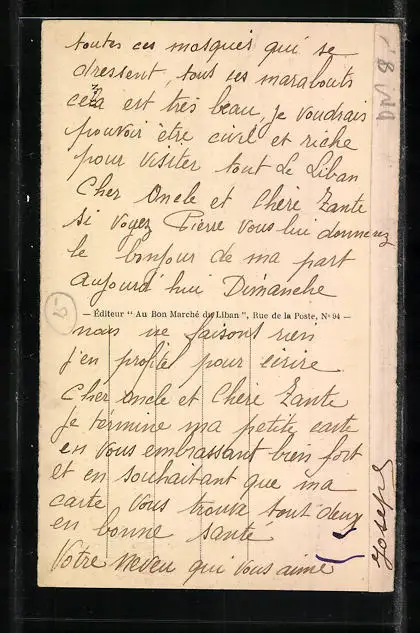 toutes ces mosqueés qui se
dressent, tous ces marabouts
cela est très beau, je voudrais
pouvoir être civil et riche
pour visiter tout le Liban
Cher Oncle et Chère Tante
si voyez Pierre vous lui donnerez
le bonjour de ma part
aujourd'hui Dimanche
— Éditeur "Au Bon Marché du Liban", Rue de la Poste, N° 94 —
nous ne faisons rien
j'en profite pour écrire
Cher oncle et Chère Tante
je termine ma petite carte
en vous embrassant bien fort
et en souhaitant que ma
carte vous trouve tout deux
en bonne santé
Votre neveu qui vous aime
Joseph